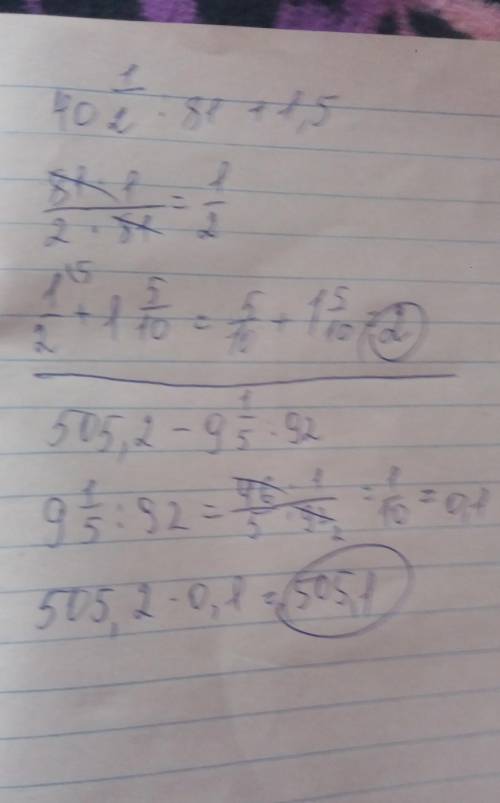 40 1/2 : 81 + 1,5
81 · 1 / 2 · 81 = 1/2
1/2 ⁵ + 1 5/10 = 5/10 + 1 5/10 = 2
505,2 - 9 1/5 : 92
9 1/5 : 92 = 46 · 1 / 5 · 92 2 = 1/10 = 0,1
505,2 - 0,1 = 505,1